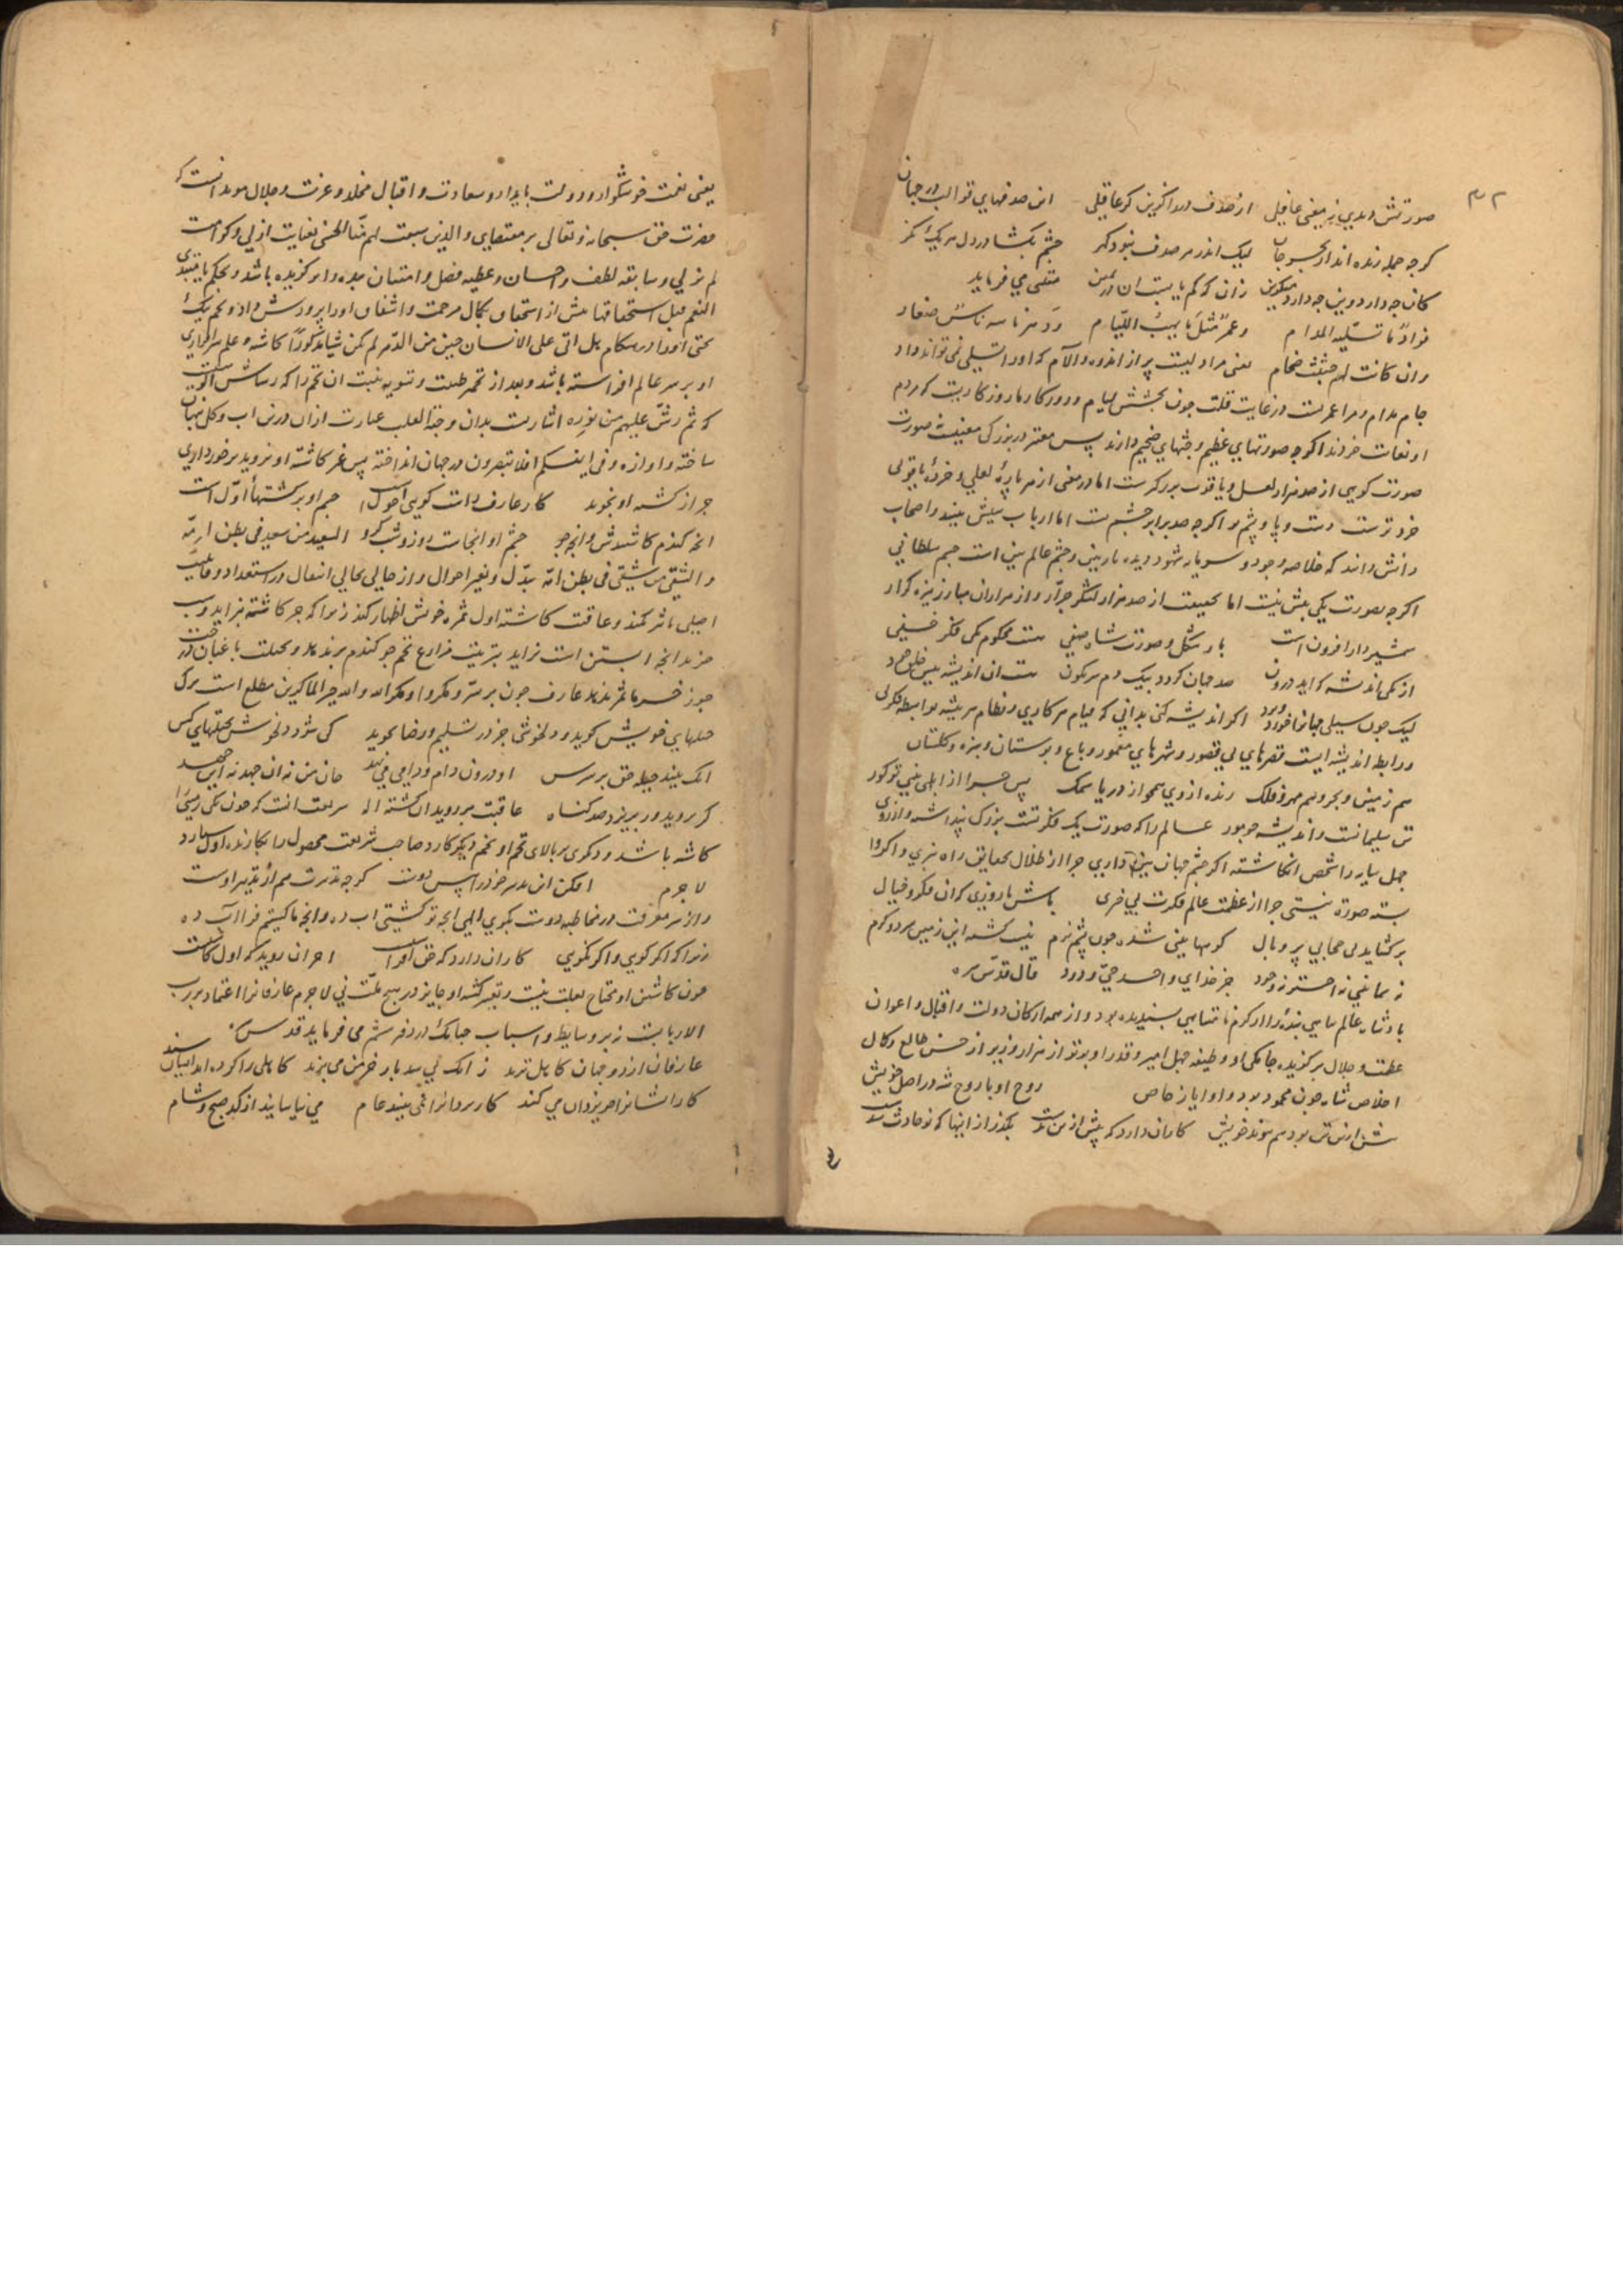 ۳۲
صورتش دیدی ز معنی غافلی از صدف در را کزین کر عاقلی این صدفهای قوالب در جهان
کرچه جمله زنده اند از بحر جان لیک اندر هر صدف نبود کهر چشم بکشا در دل هر یک نکر
کان چه دارد وین چه دارد میکزین زان که کم یابست آن در ثمین متنبی می فرماید
فواد ما تسلیه المدام و عمر مثل ما یهب اللیام و دهر ناسه ناس صغار
وان کانت لهم جثث ضخام یعنی مرا دلیست پر از اندوه و آلام که او را تسلی نمی تواند داد
جام مدام و مرا عمریست در غایت قلت چون بخشش لیام و روزکار ما روزکاریست که مردم
او بغایت خردند اکرچه صورتهای عظیم و جثهای ضخیم دارند پس معتبر در بزرکی معنیست صورت
صورت کوهی از صد هزار لعل و یاقوت بزرکترست اما در معنی از هر پاره لعلی و خرده یاقوتی
خردترست دست و پا و پشم تو اکرچه صد برابر چشم است اما ارباب بینش بینند و اصحاب
دانش دانند که خلاصه وجود و سرمایه شهود دیده باریک بین و چشم عالم بین است جسم سلطانی
اکرچه بصورت یکی بیش نیست اما بحقیقت از صد هزار لشکر جرار و از هزاران مبارز نیزه کزار
شمشیر دار افزون است باز شکل و صورت شاه صفی هست محکوم یکی فکر خفی
از یکی اندیشه که اید درون صد جهان کردد بیک دم سرنکون هست آن اندیشه پیش خلق خرد
لیک چون سیلی جهانرا خورد و برد اکر اندیشه کنی بدانی که قیام هر کاری و نظام هر پیشه بواسطه فکری
و رابطه اندیشه ایست قصرهای بی قصور و شهرهای معمور و باغ و بوستان و سبزه و کلستان
هم زمین و بحر و هم مهر و فلک زنده از وی همچو از دریا سمک پس چرا از ابلهی پیش تو کور
تن سلیمانست و اندیشه چو مور عالم را که صورت یک فکرتست بزرک پنداشته و از روی
جهل سایه را شخص انکاشته اکر چشم جهان بین داری چرا از ظلال بحقایق راه نبری و اکر وا
بسته صورت نیستی چرا از عظمت عالم فکرت بی خبری باش تا روزی که آن فکر و خیال
برکشاید بی حجابی پر و بال کوهها بینی شده چون پشم نرم نیست کشته این زمین سرد و کرم
نه سما بینی نه اختر نه وجود جز خدای واحد حی ودود قال قدس سره
پادشاه عالم پناهی بنده را از کرم نامتناهی پسندیده بود و از همه ارکان دولت و اقبال و اعوان
عظمت و جلال برکزیده جامکی او وظیفه چهل امیر و قدر او برتر از هزار وزیر از حسن طالع و کمال
اخلاص شاه چون محمود بود و او ایاز خاص روح او با روح شه در اصل خویش
پیش ازین تن بود هم پیوند خویش کار آن دارد که پیش از تن بدست بکذر از اینها که نو حادث شدست
یعنی نعمت خوشکوار و دولت پایدار و سعادت و اقبال مخلد و عزت و جلال موبد آنست که
حضرت حق سبحانه و تعالی بر مقتضای والذین سبقت لهم منا الحسنی بعنایت ازلی و کرامت
لم یزلی و سابقه لطف و احسان و عطیه فضل و امتنان بنده را برکزیده باشد و بحکم یا مبتدی
النعم قبل استحقاقها پیش از استحقاق بکمال مرحمت و اشفاق او را پرورش داده و تخم نیک
بختی او را در هنکام هل اتی علی الانسان حین من الدهر لم یکن شیئا مذکورا کاشته و علم سرافرازی
او بر سر عالم افراشته باشد و بعد از تخمر طینت و تسویه نبت آن تخم را که رشاش آنست
که ثم رش علیهم من نوره اشارتست بدان و جذبه القلب عبارت از آن درین آب و کل پنهان
ساخته و آوازه و فی انفسکم افلا تبصرون در جهان انداخته پس غیر کاشته او نروید و برخورداری
جز از کشته او نجوید کار عارف راست کو نی احولست چشم او بر کشتهای اولست
آنچه کندم کاشتندش و آنچه جو چشم او آنجاست روز و شب کرو السعید من سعد فی بطن امه
و الشقی من شقی فی بطن امه تبدل و تغیر احوال و از حالی بحالی انتقال در استعداد و قابلیت
اصلی تاثیر نکند و عاقبت کاشته اول ثمره خویش اظهار کند زیرا که جز کاشته نزاید و شب
جز بدانچه آبستن است نزاید بتربیت مزارع تخم جو کندم بر ندهد و بحیلت باغبان درخت
جوز خرما ثمر ندهد عارف چون بر سر و مکروا و مکر الله والله خیر الماکرین مطلع است ترک
حیلهای خویش کوید و دلخوشی جز در تسلیم و رضا نجوید کی شود دلخوش بحیلتهای کس
آنک بیند حیله حق بر سرش او درون دام و دامی می نهد جان من نه آن جهد نه این جهد
کر بروید ور بریزد صد کیاه عاقبت بر روید آن کشته اله شریعت آنست که چون یکی زمین را
کاشته باشد و دیکری بر بالای تخم او تخم دیکر کارد صاحب شریعت محصول را بکارنده اول سپارد
لاجرم افکن این تدبیر خود را پیش دوست کرچه تدبیرت هم از تدبیر اوست
و از سر معرفت در مخاطبه دوست بکوی الهی آنچه تو کشتی آب ده و آنچه ما کشتیم فرا آب ده
زیرا که اکر کوی و اکر نکوی کار آن دارد که حق افراشتست آخر آن روید که اول کاشتست
چون کاشتن او محتاج بعلت نیست و تغییر کشته او جایز در هیچ ملت نی لاجرم عارفانرا اعتماد بر رب
الاربابست نه بر وسایط و اسباب چنانک در دفتر ششم می فرماید قدس سره
عارفان از دو جهان کاهل ترند زانک بی شدیار خرمن می برند کاهلی را کرده اند ایشان سند
کار ایشانرا چو یزدان می کند کار یزدانرا نمی بینند عام می نیاسایند از کد صبح و شام